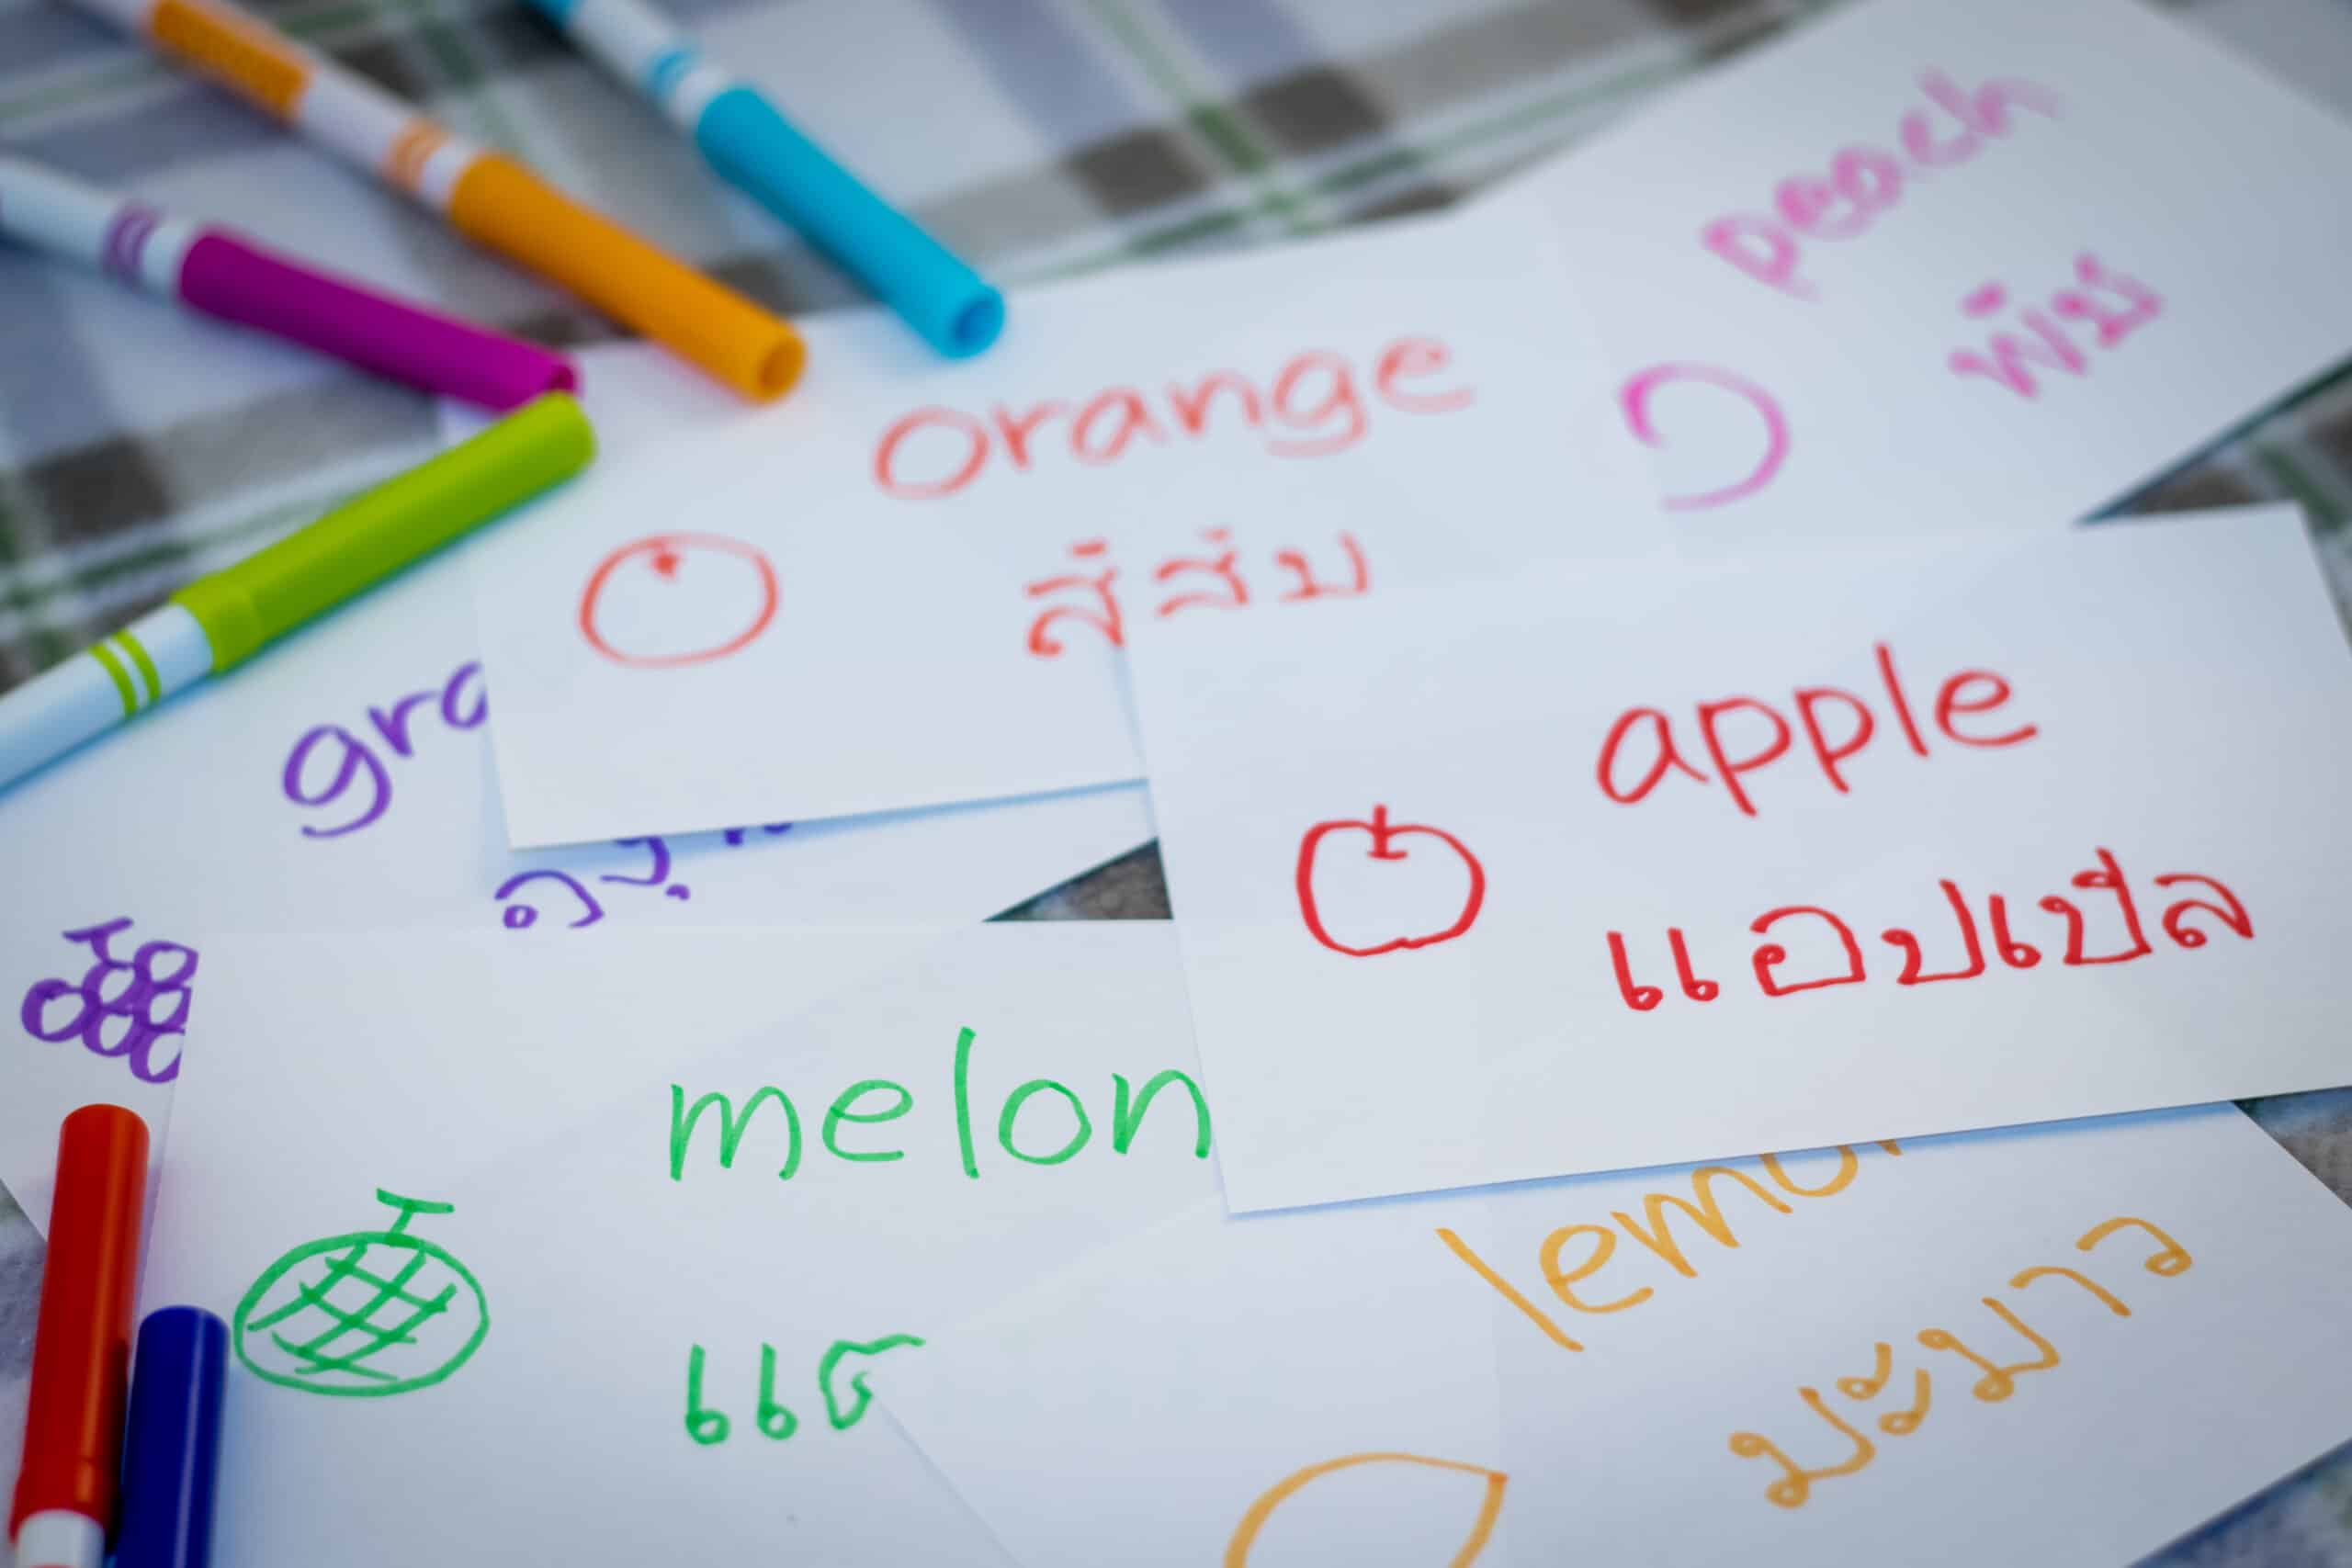 peach
orange
สีส้ม
gra
apple
แอปเปิล
melon
lemon
มะนาว